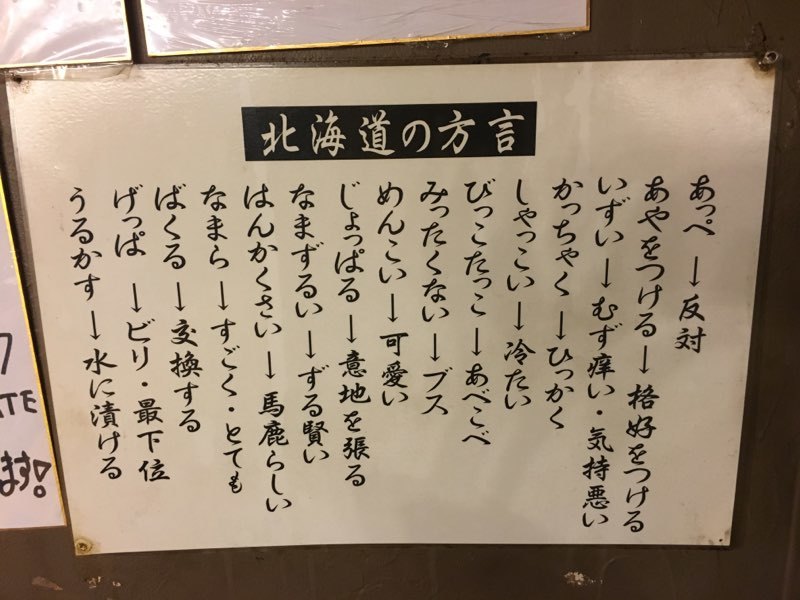 北海道の方言
あっぺ→反対
あやをつける→格好をつける
いずい→むず痒い・気持悪い
かっちゃく→ひっかく
しゃっこい→冷たい
びっこたっこ→あべこべ
みったくない→ブス
めんこい→可愛い
じょっぱる→意地を張る
なまずるい→ずる賢い
はんかくさい→馬鹿らしい
なまら→すごく・とても
ばくる→交換する
げっぱ→ビリ・最下位
うるかす→水に漬ける
ATE
ます!